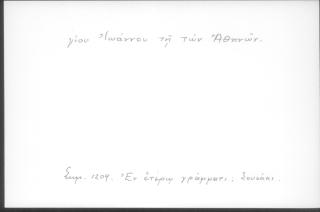 γίου Ἰωάννου τῆ τῶν Ἀθηνῶν.
Σημ. 1204. Ἐν ἑτέρῳ γράμματι: Σουσάκι.